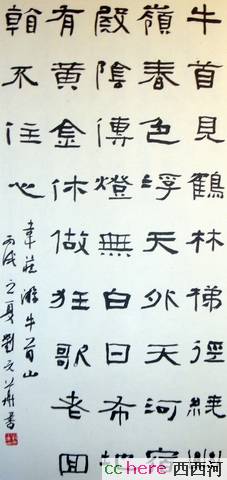 牛首見鶴林梯徑繞幽
嶺春色浮天外天河宿
殿陰傳燈無白日布地
有黃金休做狂歌老回
翰不住心
韋莊游牛首山
丙戌之夏劉文華書
cchere 西西河